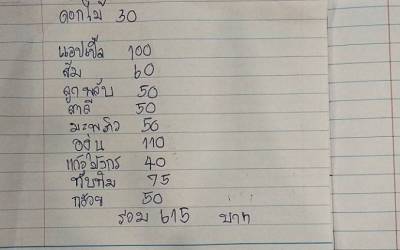 ดอกไม้ 30
แอปเปิ้ล 100
ส้ม 60
ลูกพลับ 50
สาลี่ 50
มะพร้าว 50
องุ่น 110
แก้วมังกร 40
ทับทิม 75
กล้วย 50
รวม 615 บาท